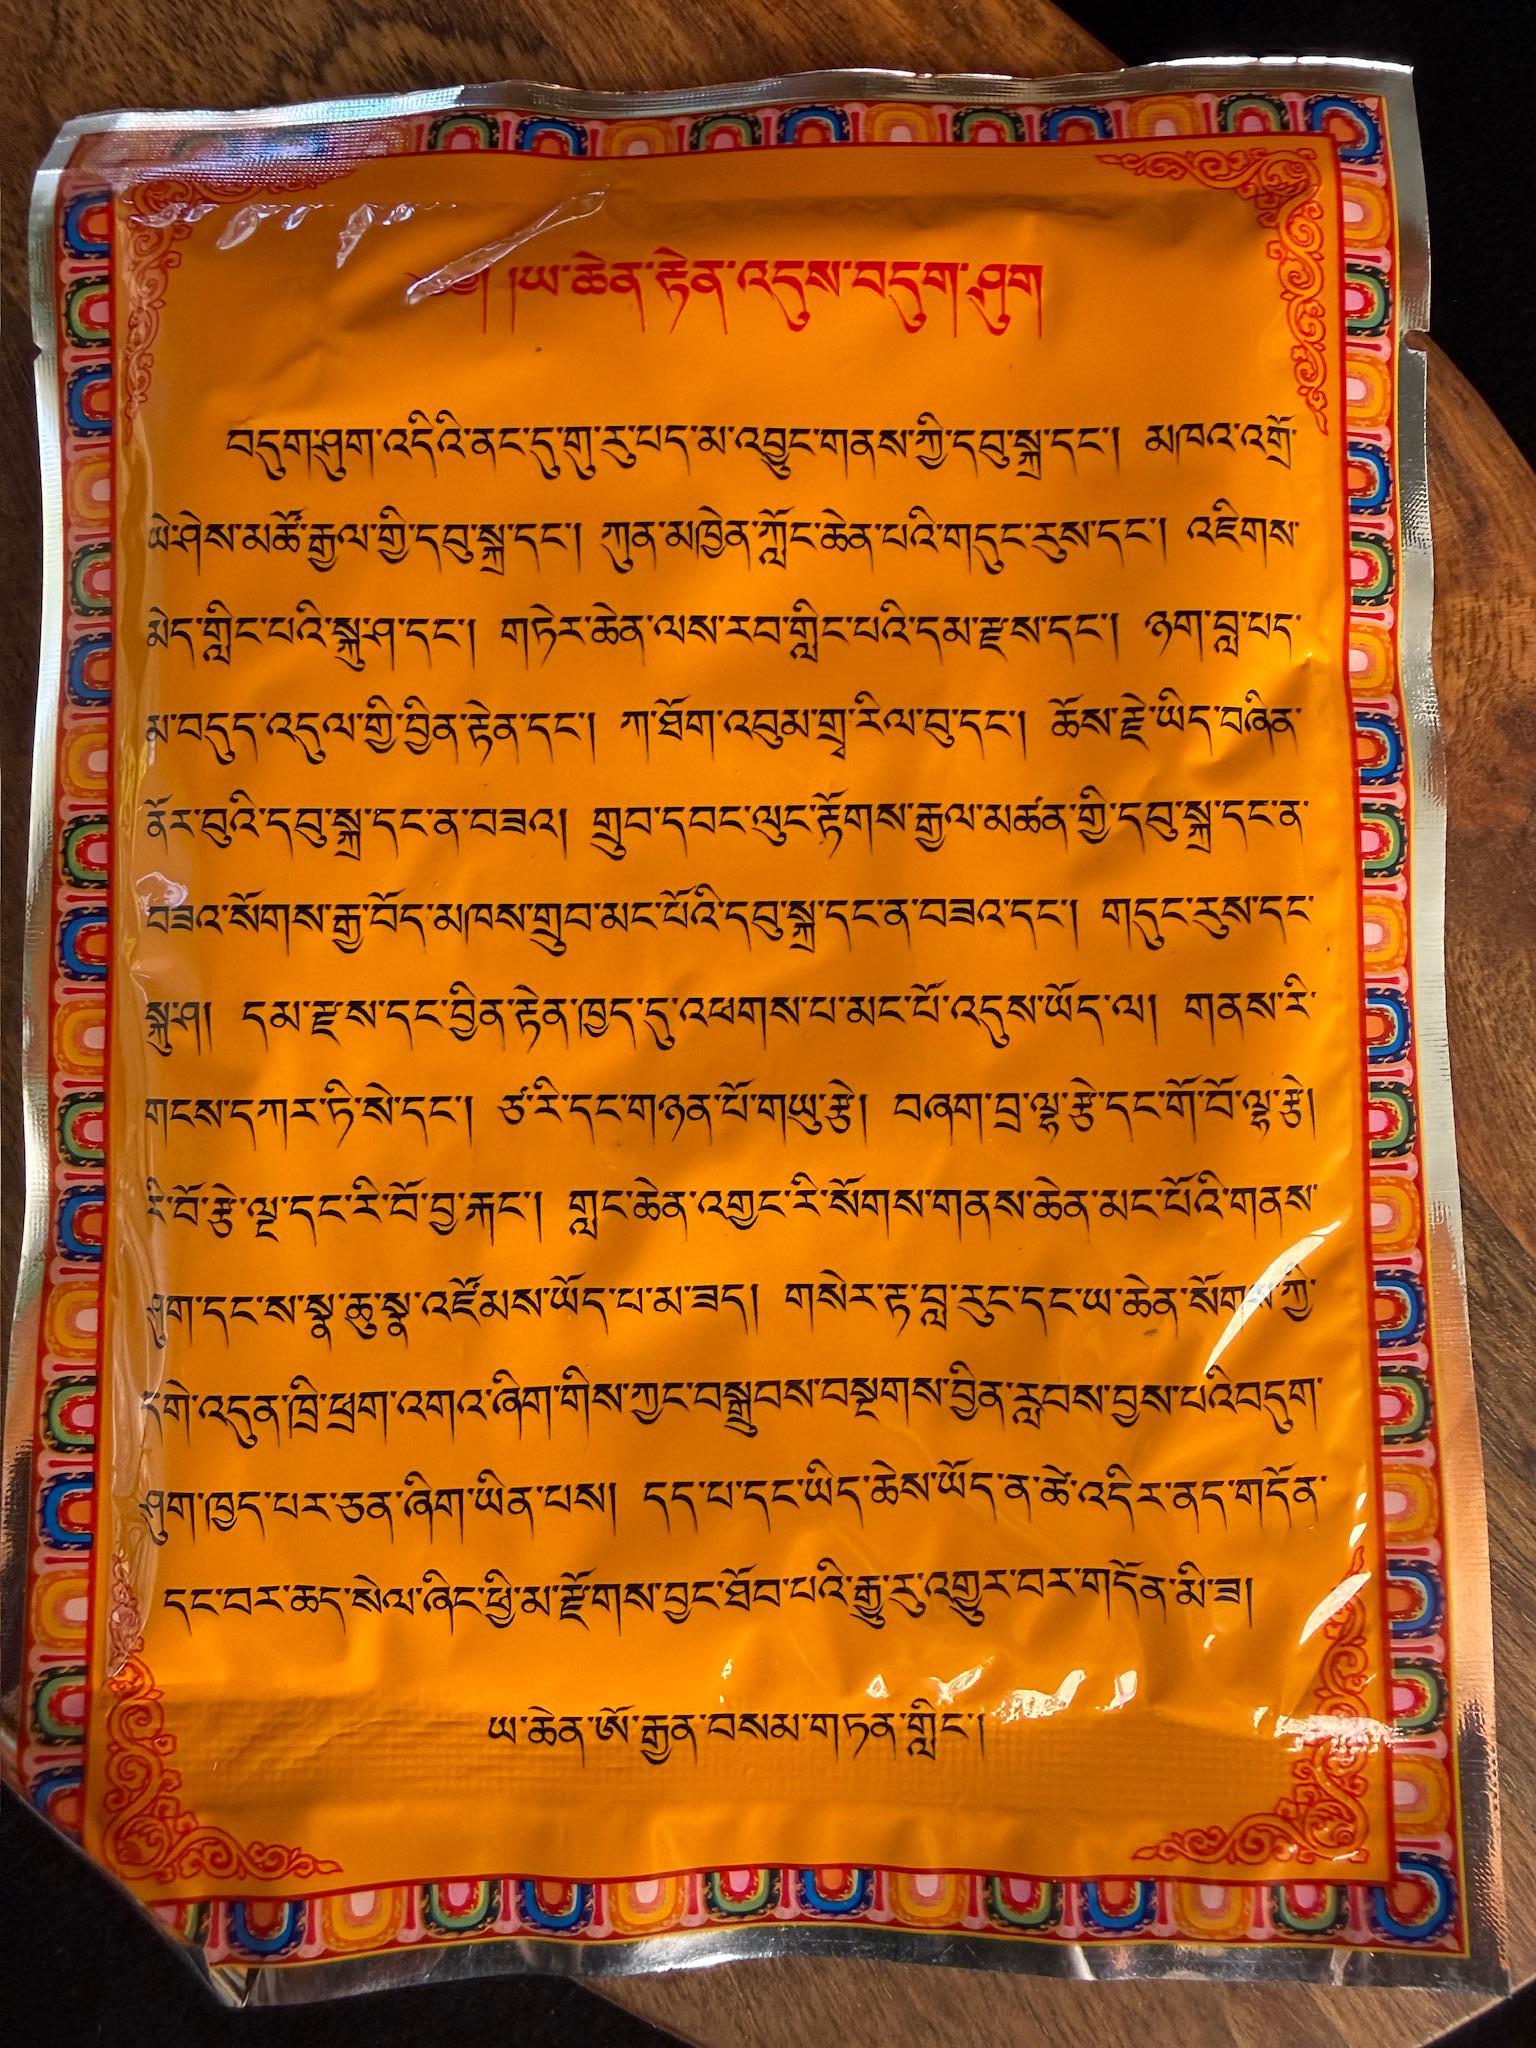 ༄༅། །ཡ་ཆེན་རྟེན་འདུས་བདུག་ཤུག
བདུག་ཤུག་འདིའི་ནང་དུ་གུ་རུ་པད་མ་འབྱུང་གནས་ཀྱི་དབུ་སྐྲ་དང་། མཁའ་འགྲོ་
ཡེ་ཤེས་མཚོ་རྒྱལ་གྱི་དབུ་སྐྲ་དང་། ཀུན་མཁྱེན་ཀློང་ཆེན་པའི་གདུང་རུས་དང་། འཇིགས་
མེད་གླིང་པའི་སྐུ་ཤ་དང་། གཏེར་ཆེན་ལས་རབ་གླིང་པའི་དམ་རྫས་དང་། ཉག་བླ་པད་
མ་བདུད་འདུལ་གྱི་བྱིན་རྟེན་དང་། ཀ་ཐོག་འབུམ་གྲྭ་རིལ་བུ་དང་། ཆོས་རྗེ་ཡིད་བཞིན་
ནོར་བུའི་དབུ་སྐྲ་དང་ན་བཟའ། གྲུབ་དབང་ལུང་རྟོགས་རྒྱལ་མཚན་གྱི་དབུ་སྐྲ་དང་ན་
བཟའ་སོགས་རྒྱ་བོད་མཁས་གྲུབ་མང་པོའི་དབུ་སྐྲ་དང་ན་བཟའ་དང་། གདུང་རུས་དང་
སྐུ་ཤ། དམ་རྫས་དང་བྱིན་རྟེན་ཁྱད་དུ་འཕགས་པ་མང་པོ་འདུས་ཡོད་ལ། གནས་རི་
གངས་དཀར་ཏི་སེ་དང་། ཙ་རི་དང་གཉན་པོ་གཡུ་རྩེ། བཞག་བྲ་ལྷ་རྩེ་དང་གོ་བོ་ལྷ་རྩེ།
རི་བོ་རྩེ་ལྔ་དང་རི་བོ་བྱ་རྐང་། གླང་ཆེན་འགྱང་རི་སོགས་གནས་ཆེན་མང་པོའི་གནས་
ཤུག་དང་ས་སྣ་ཆུ་སྣ་འཛོམས་ཡོད་པ་མ་ཟད། གསེར་རྟ་བླ་རུང་དང་ཡ་ཆེན་སོགས་ཀྱི་
དགེ་འདུན་ཁྲི་ཕྲག་འགའ་ཞིག་གིས་ཀྱང་བསྒྲུབས་བསྔགས་བྱིན་རླབས་བྱས་པའི་བདུག་
ཤུག་ཁྱད་པར་ཅན་ཞིག་ཡིན་པས། དད་པ་དང་ཡིད་ཆེས་ཡོད་ན་ཚེ་འདིར་ནད་གདོན་
དང་བར་ཆད་སེལ་ཞིང་ཕྱི་མ་རྫོགས་བྱང་ཐོབ་པའི་རྒྱུ་རུ་འགྱུར་བར་གདོན་མི་ཟ།
ཡ་ཆེན་ཨོ་རྒྱན་བསམ་གཏན་གླིང་།